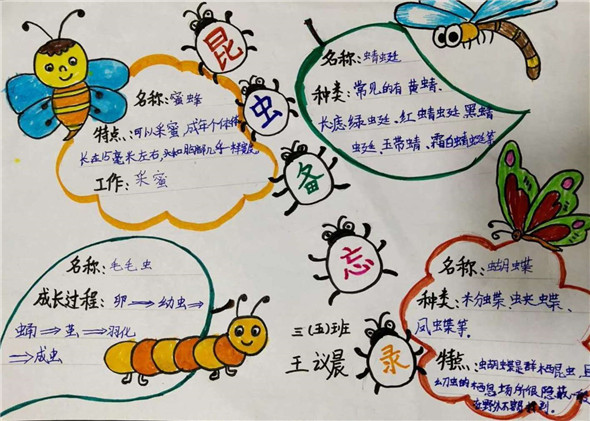 昆
虫
备
忘
录
名称：蜜蜂
特点：可以采蜜，成年个体体
长在15毫米左右，头和胸部几乎一样宽
工作：采蜜
名称：蜻蜓
种类：常见的有黄蜻、
长痣绿蜓、红蜻蜓、黑蜻
蜓、玉带蜻、霜白蜻蜓等
名称：毛毛虫
成长过程：卵⇒幼虫⇒
蛹⇒茧⇒羽化
⇒成虫
三（五）班
王议晨
名称：蝴蝶
种类：粉蝶、蛱蝶、
凤蝶等。
特点：蝴蝶是群栖昆虫，且
幼虫的栖息场所很隐蔽，一般
在野外不易找到。